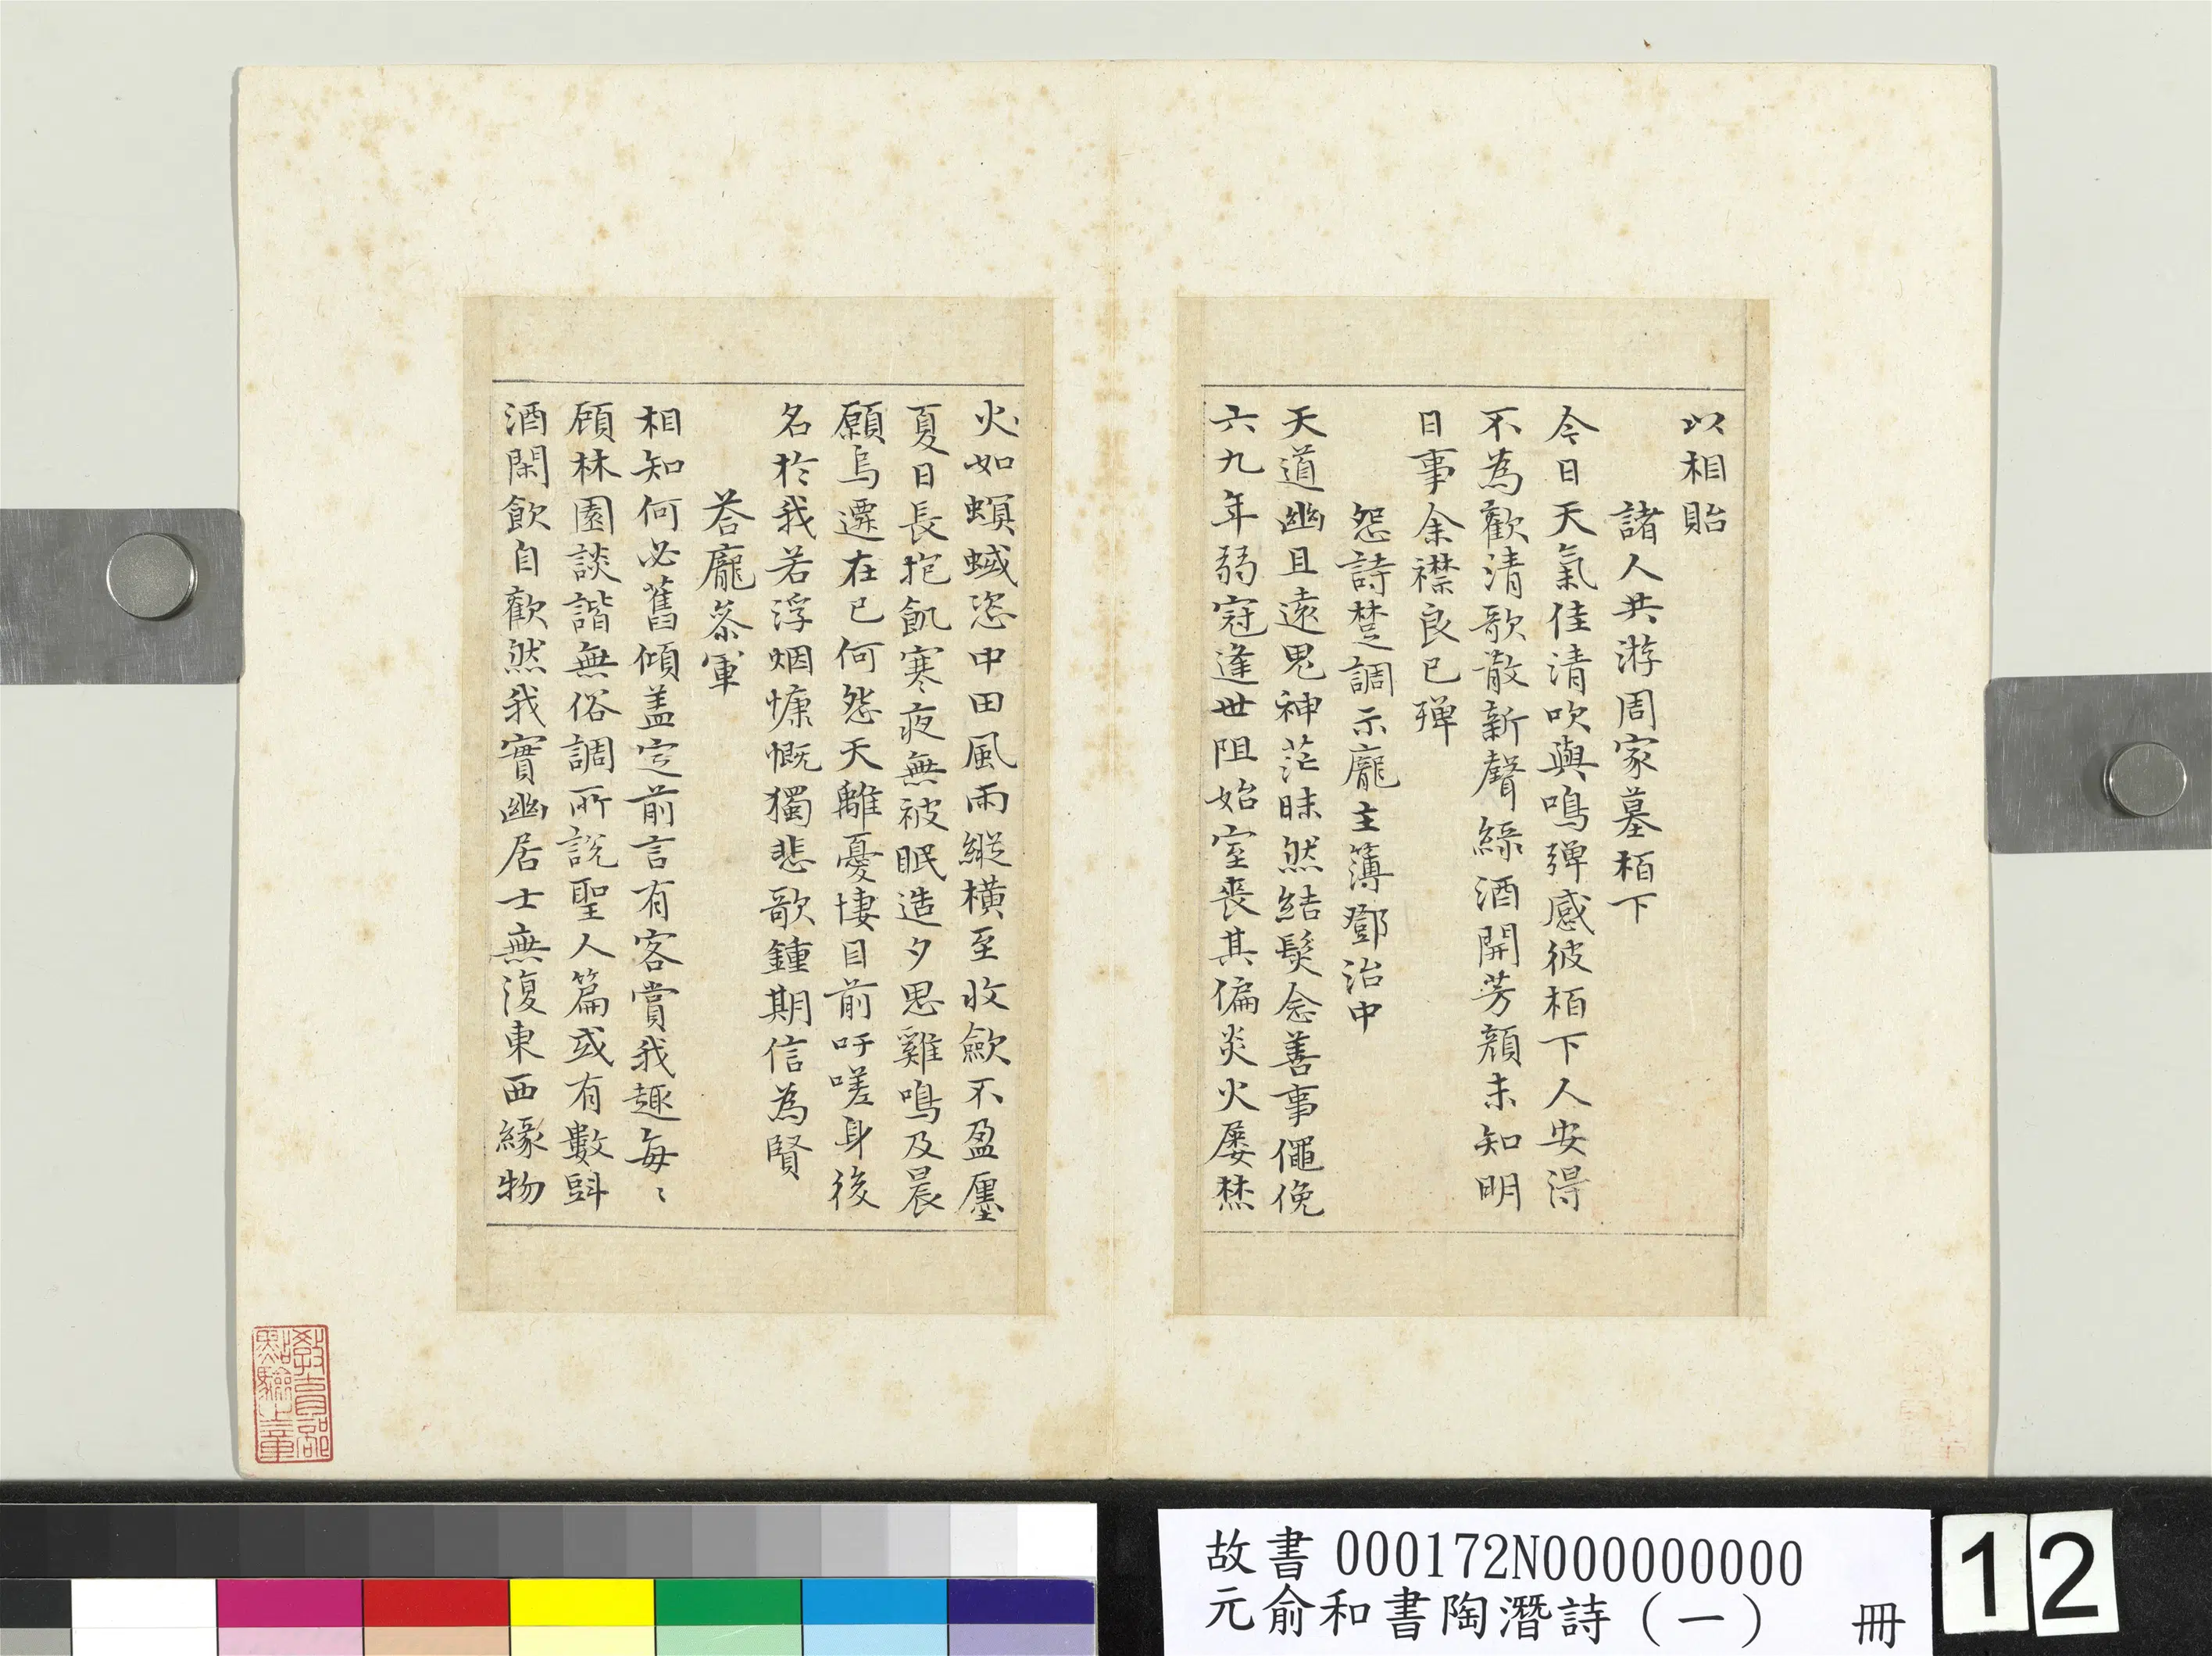 以相貽
諸人共游周家墓栢下
今日天氣佳清吹與鳴彈感彼栢下人安得
不為歡清歌散新聲綠酒開芳顏未知明
日事余襟良已殫
怨詩楚調示龐主簿鄧治中
天道幽且遠鬼神茫昧然結髮念善事僶俛
六九年弱冠逢世阻始室喪其偏炎火屢焚
火如螟蜮恣中田風雨縱橫至收斂不盈廛
夏日長抱飢寒夜無被眠造夕思雞鳴及晨
願烏遷在已何怨天離憂悽目前吁嗟身後
名於我若浮烟慷慨獨悲歌鍾期信為賢
荅龐參軍
相知何必舊傾盖定前言有客賞我趣每〻
顧林園談諧無俗調所説聖人篇或有數㪷
酒閑飲自歡然我實幽居士無復東西緣物
教育部點驗之章
故書 000172N000000000
元俞和書陶潛詩（一） 冊
12